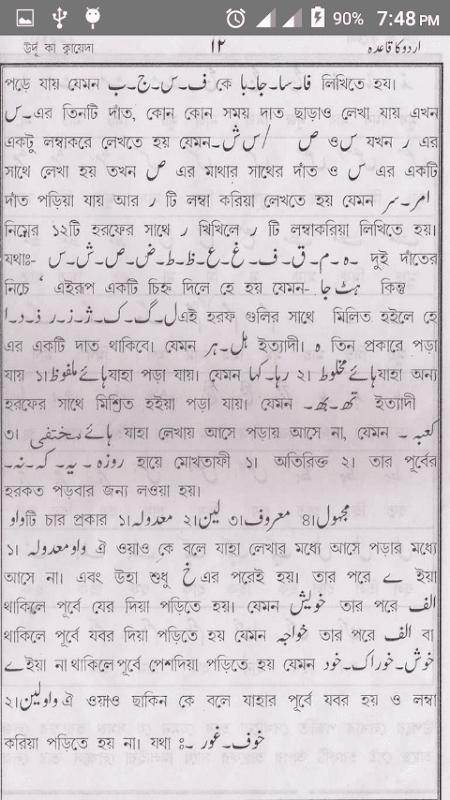 90% 7:48 PM
উর্দূ কা ক্বায়েদা ١٢ اردو کا قاعدہ
পড়ে যায় যেমন ف۔س۔ج۔ب কে فا۔سا۔جا۔با লিখিতে হয।
س-এর তিনটি দাঁত, কোন কোন সময় দাত ছাড়াও লেখা যায় এখন
একটু লম্বাকরে লেখতে হয় যেমন-س ش / ص ওس যখন ر এর
সাথে লেখা হয় তখন ص এর মাথার সাথের দাঁত ও س এর একটি
দাঁত পড়িয়া যায় আর ر টি লম্বা করিয়া লেখতে হয় যেমন امر۔سر
নিম্নের ১২টি হরফের সাথে ر খিখিলে ر টি লম্বাকরিয়া লিখিতে হয়।
যথাঃ- ہ۔م۔ق۔ف۔غ۔ع۔ظ۔ط۔ض۔ص۔ش۔س দুই দাঁতের
নিচে ‘ এইরূপ একটি চিহ্ন দিলে হে হয় যেমন- ہٹ جا কিন্তু
ل۔گ۔ک۔ژ۔ز۔ر۔ذ۔د۔ا এই হরফ গুলির সাথে মিলিত হইলে হে
এর একটি দাত থাকিবে। যেমন ہل۔ہر ইত্যাদী। ہ তিন প্রকারে পড়া
যায় ১। ہائے ملفوظ যাহা পড়া যায়। যেমন رہا۔کہا ২। ہائے مخلوط যাহা অন্য
হরফের সাথে মিশ্রিত হইয়া পড়া যায়। যেমন تھ۔بھ۔ ইত্যাদী
৩। ہائے مختفی যাহা লেখায় আসে পড়ায় আসে না, যেমন کعبہ۔
روزہ۔یہ۔کہ۔نہ۔ হায়ে মোখতাফী ১। অতিরিক্ত ২। তার পূর্বের
হরকত পড়বার জন্য লওয়া হয়।
واو টি চার প্রকার ১। معدولہ ২। لین ৩। معروف ৪। مجہول
১। واو معدولہ ঐ ওয়াও কে বলে যাহা লেখার মধ্যে আসে পড়ার মধ্যে
আসে না। এবং উহা শুধু خ এর পরেই হয়। তার পরে ے ইয়া
থাকিলে পূর্বে যের দিয়া পড়িতে হয়। যেমন خویش তার পরে الف
থাকিলে পূর্বে যবর দিয়া পড়িতে হয় যেমন خواجہ তার পরে الف বা
ے ইয়া না থাকিলে পূর্বে পেশদিয়া পড়িতে হয় যেমন خوش۔خوراک۔خود
২। واو لین ঐ ওয়াও ছাকিন কে বলে যাহার পূর্বে যবর হয় ও লম্বা
করিয়া পড়িতে হয় না। যথা ঃ- خوف۔غور